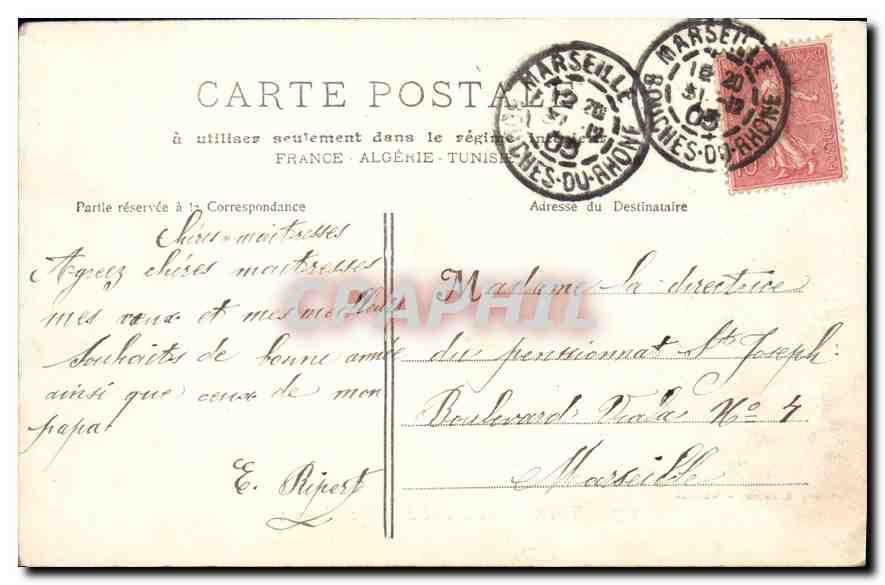 CARTE POSTALE
à utiliser seulement dans le régime intérieur
FRANCE - ALGÉRIE - TUNISIE
MARSEILLE
12 20
31 12
05
BOUCHES-DU-RHÔNE
MARSEILLE
12 20
31 12
05
BOUCHES-DU-RHÔNE
Partie réservée à la Correspondance
Adresse du Destinataire
Chères maitresses
Agréez chères maitresses
mes vœux et mes meilleurs
Souhaits de bonne année
ainsi que ceux de mon
papa
E. Ripert
Madame la directrice
du penssionnat St Joseph
Boulevard Viala No 4
Marseille
CPAPHIL